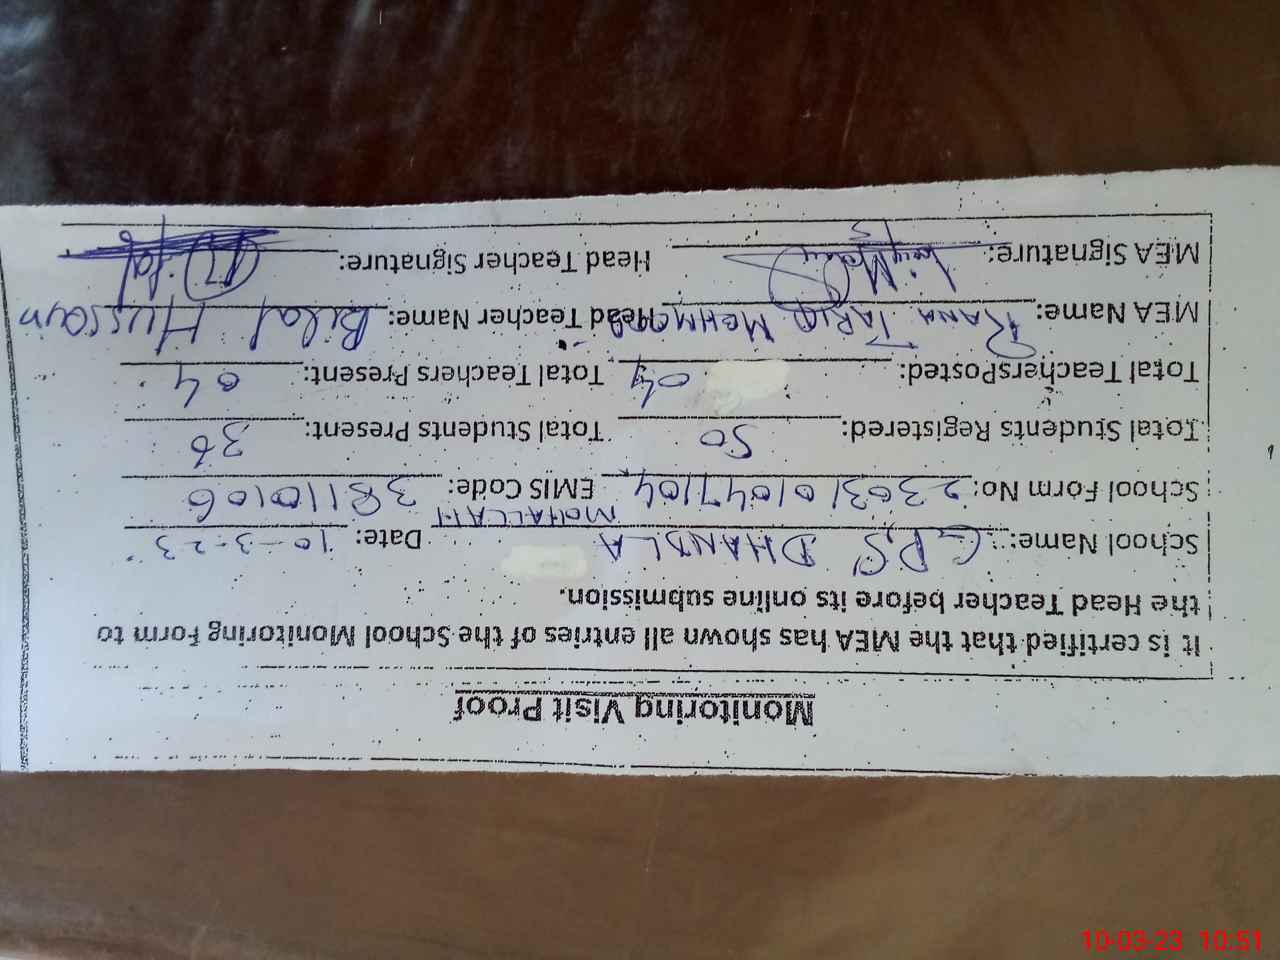 Monitoring Visit Proof
It is certified that the MEA has shown all entries of the School Monitoring Form to
the Head Teacher before its online submission.
School Name: G.P.S DHANDLA MOHALLAH Date: 10-3-23
School Form No: 2303101047104 EMIS Code: 38110106
Total Students Registered: 50 Total Students Present: 36
Total TeachersPosted: 04 Total Teachers Present: 04
MEA Name: RANA TARIQ MEHMOOD Head Teacher Name: Bilal Hussain
MEA Signature: Head Teacher Signature: Bilal
10-03-23 10:51